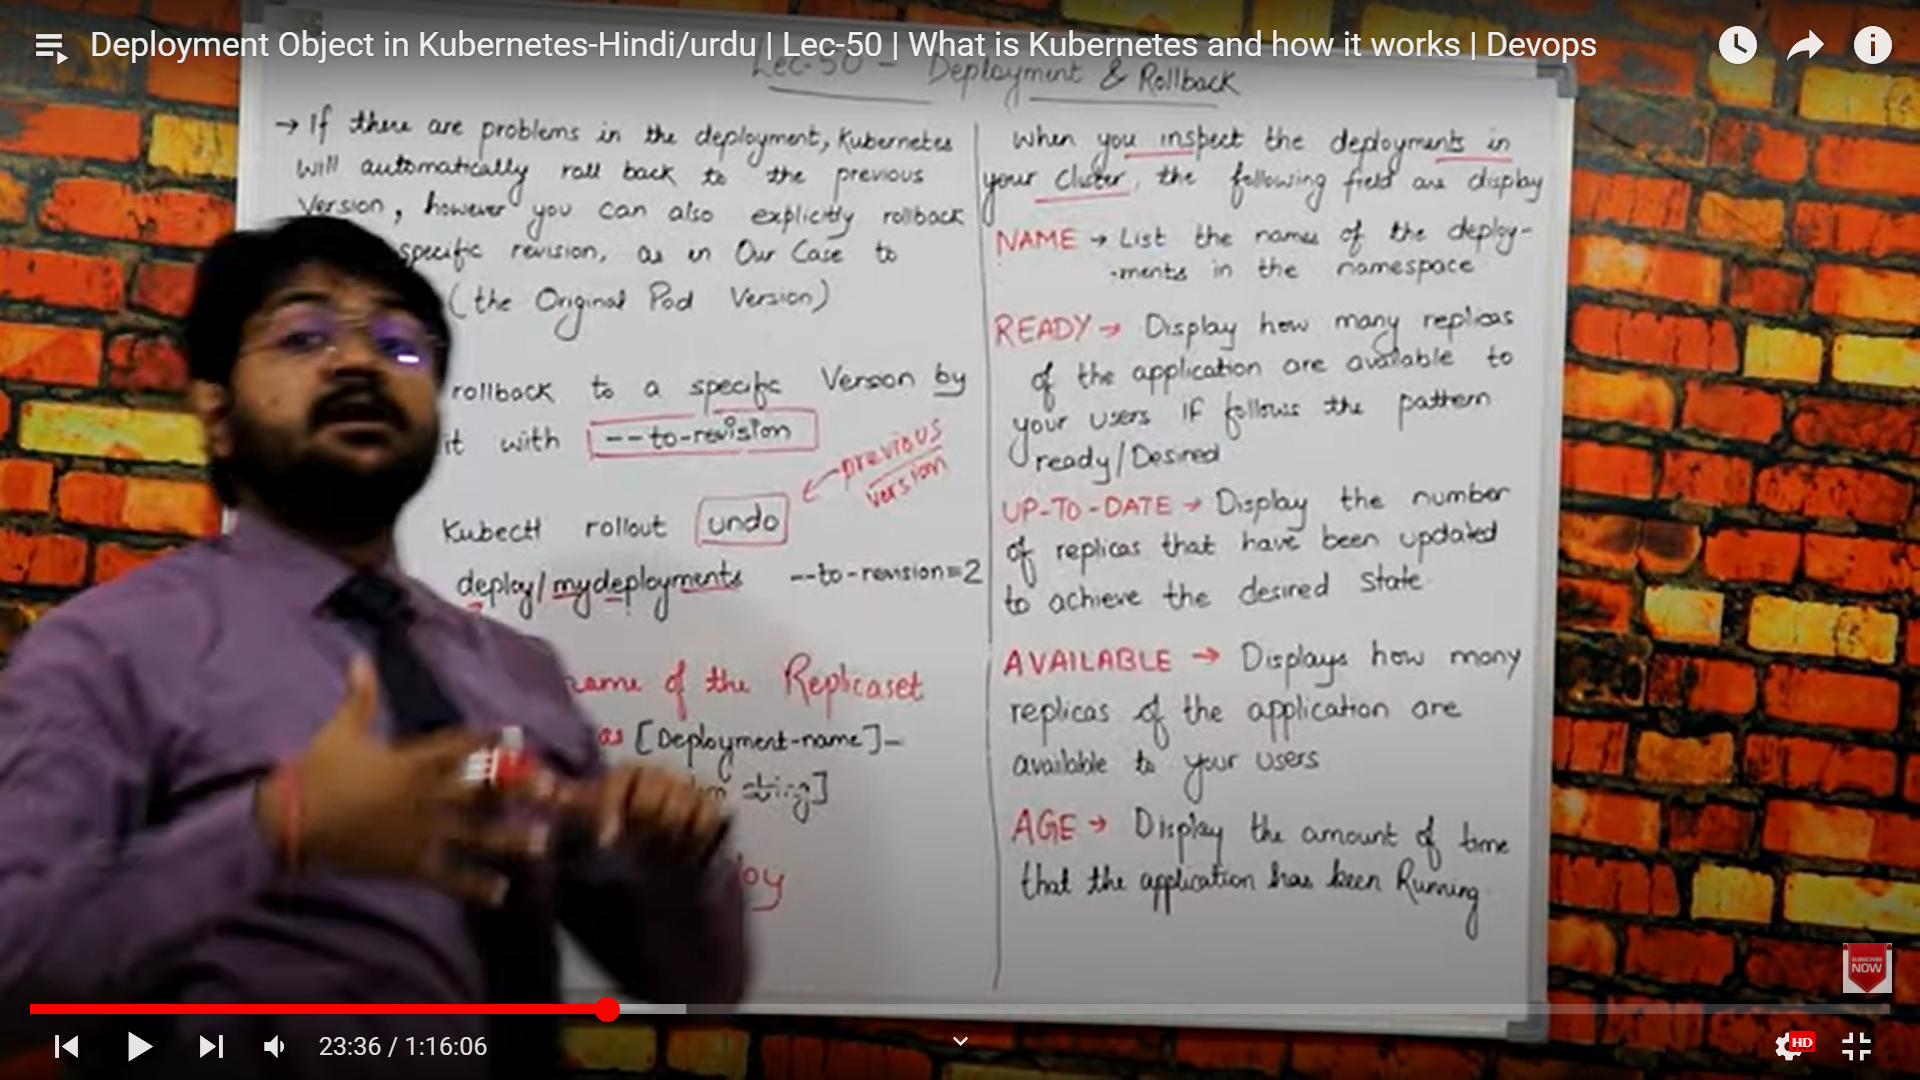 Deployment Object in Kubernetes-Hindi/urdu | Lec-50 | What is Kubernetes and how it works | Devops
Lec-50 - Deployment & Rollback
→ If there are problems in the deployment, Kubernetes
will automatically roll back to the previous
Version, however you can also explicitly rollback
specific revision, as in Our Case to
(the Original Pod Version)
rollback to a specific Version by
it with --to-revision
previous
version
Kubectl rollout undo
deploy/mydeployments --to-revision=2
name of the Replicaset
as [Deployment-name]-
string]
When you inspect the deployments in
your cluster, the following field are display
NAME → List the names of the deploy-
-ments in the namespace
READY → Display how many replicas
of the application are available to
your users if follows the pattern
ready/Desired
UP-TO-DATE → Display the number
of replicas that have been updated
to achieve the desired state.
AVAILABLE → Displays how many
replicas of the application are
available to your users
AGE → Display the amount of time
that the application has been Running.
SUBSCRIBE
NOW
23:36 / 1:16:06
HD